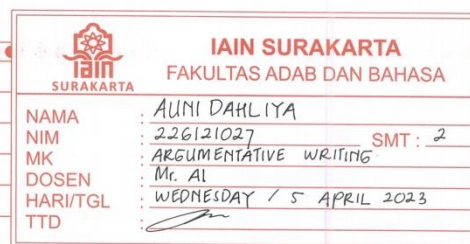 iain
SURAKARTA
IAIN SURAKARTA
FAKULTAS ADAB DAN BAHASA
NAMA : AUNI DAHLIYA
NIM : 226121027 SMT : 2
MK : ARGUMENTATIVE WRITING
DOSEN : Mr. Al
HARI/TGL : WEDNESDAY / 5 APRIL 2023
TTD :